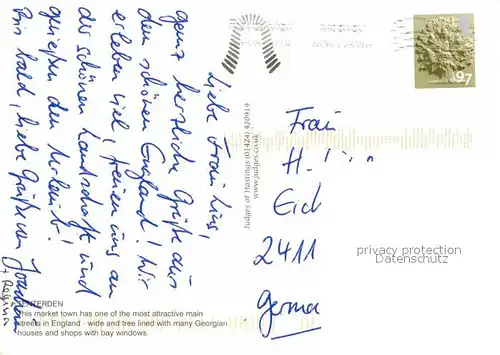 Liebe Frau Lins,
ganz herzliche Grüße aus
dem schönen England! Wir
erleben viel, freuen uns an
der schönen Landschaft und
genießen den Urlaub!
Bis bald, liebe Grüße von Joachim
+ Regina
97
Judges of Hastings (01424) 426919
www.judges.co.uk
Frau
H.
Eich
2411
Germa
privacy protection
Datenschutz
TENTERDEN
This market town has one of the most attractive main
streets in England - wide and tree lined with many Georgian
houses and shops with bay windows.